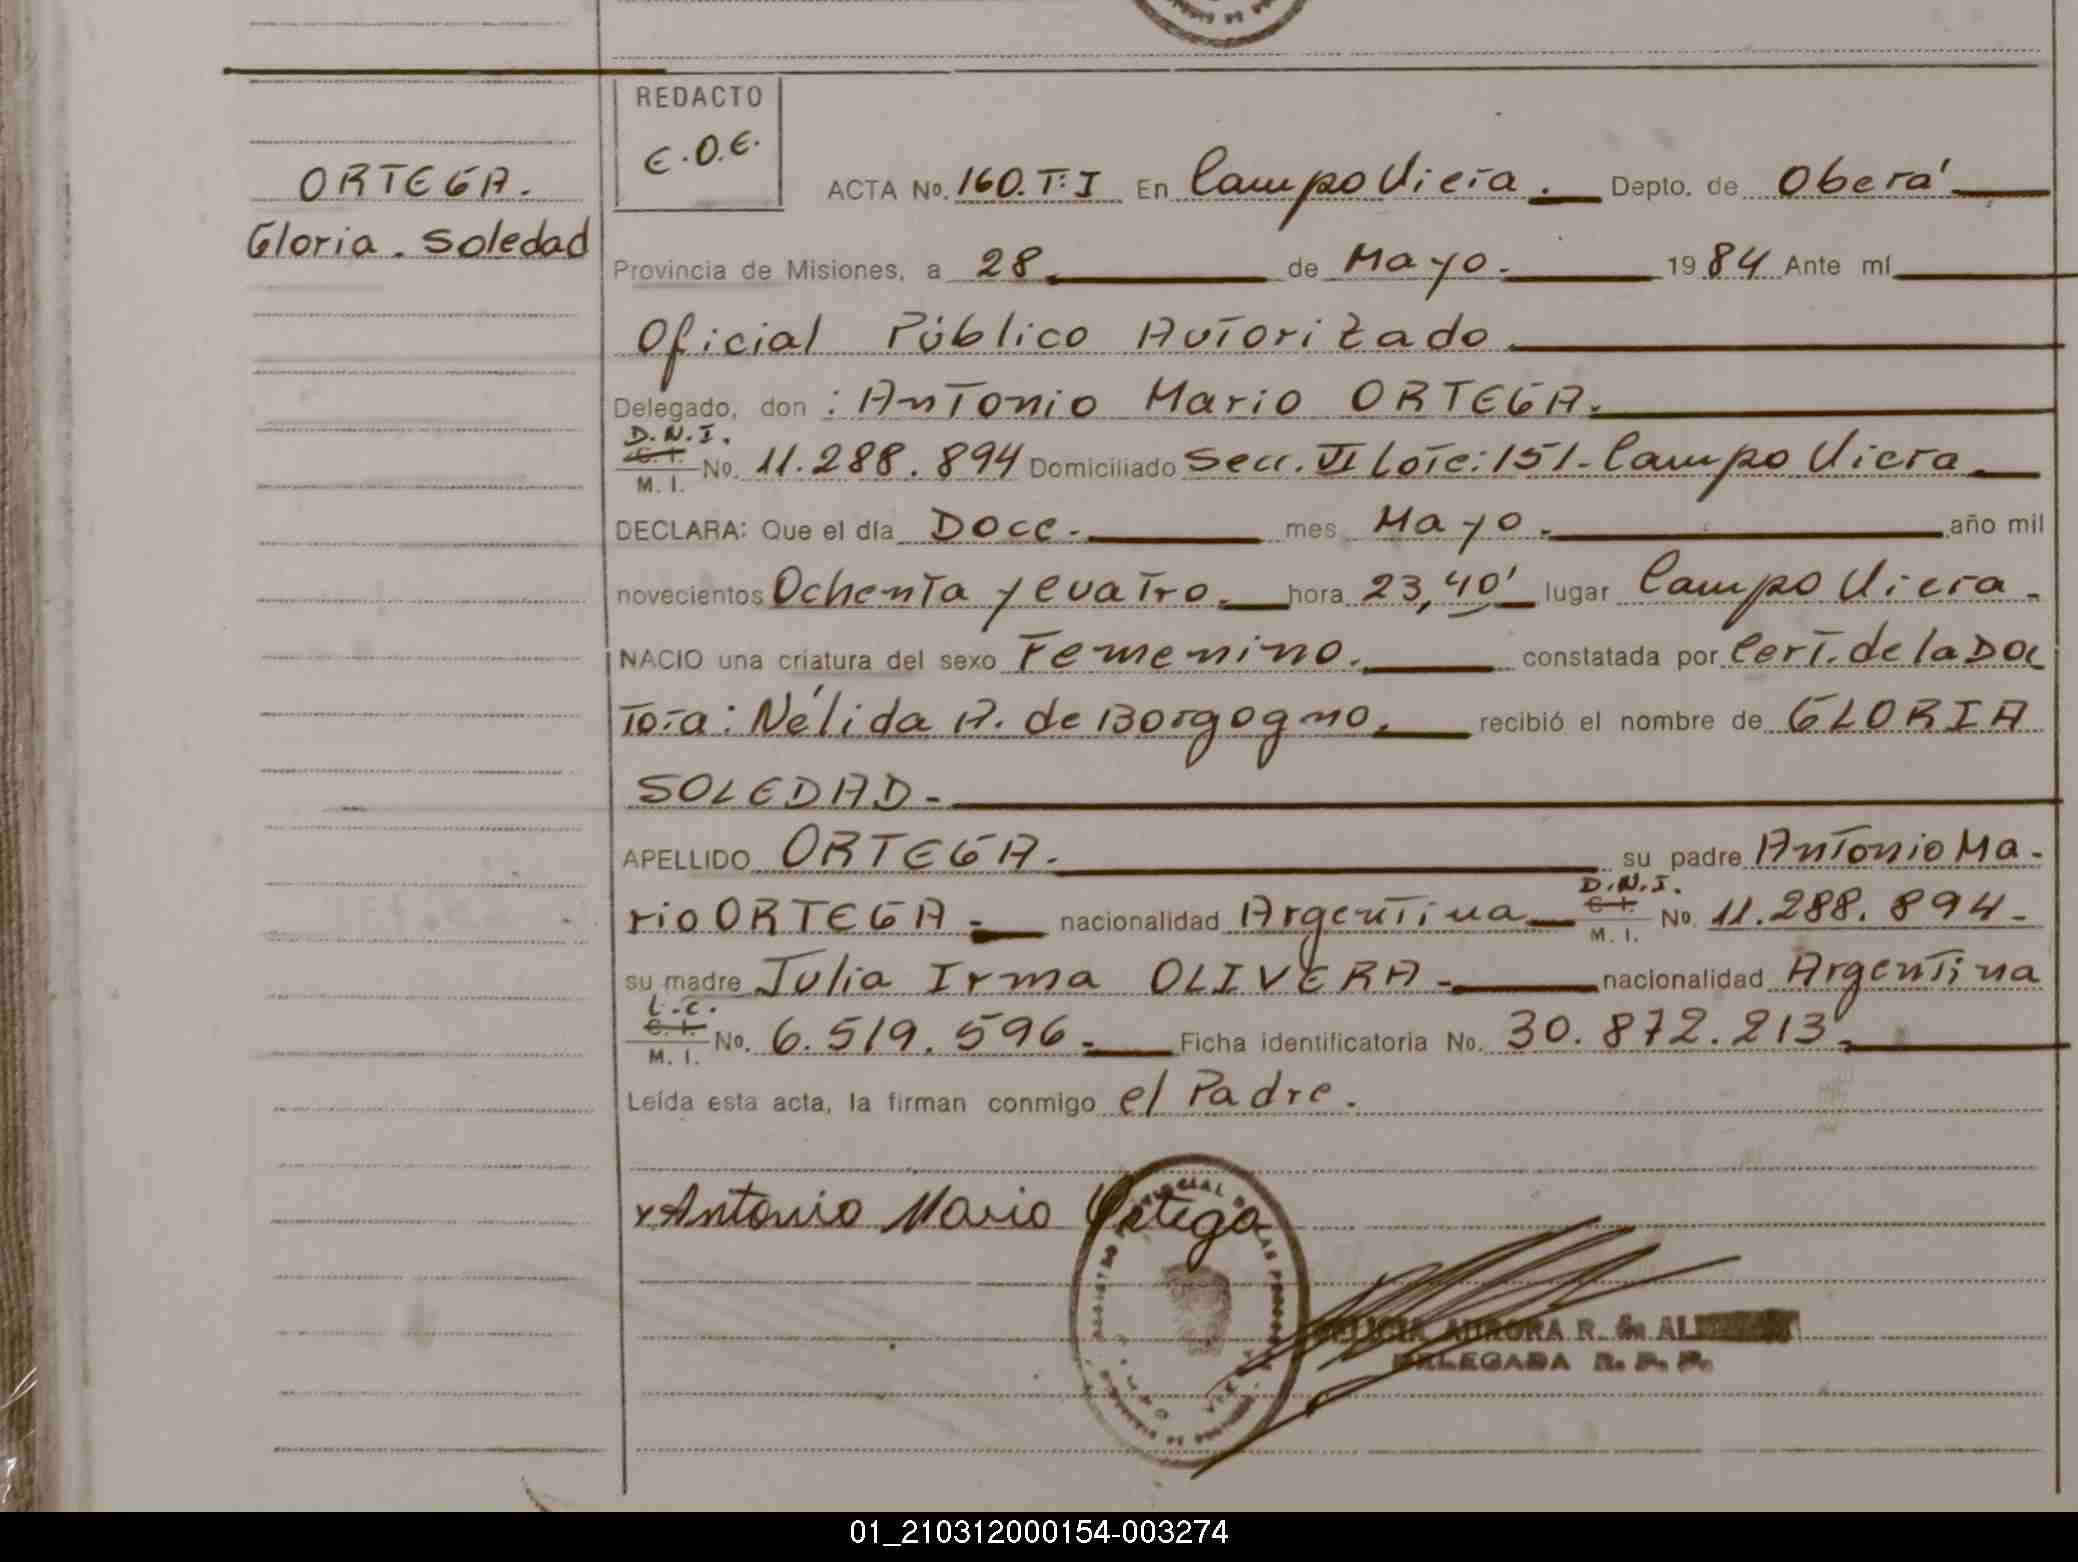 REDACTO
E.O.E.
ORTEGA.
Gloria. Soledad
ACTA No. 160.T:I En Campo Viera. Depto. de Oberá
Provincia de Misiones, a 28 de Mayo. 1984 Ante mí
Oficial Público Autorizado.
Delegado, don : Antonio Mario ORTEGA.
D.N.I.
C. I.
M. I.
No. 11.288.894 Domiciliado Secc. VI Lote: 151- Campo Viera
DECLARA: Que el día Doce. mes Mayo. año mil
novecientos Ochenta y cuatro. hora 23,40' lugar Campo Viera.
NACIO una criatura del sexo Femenino. constatada por Cert. de la Doc
tora: Nélida A. de Borgogno. recibió el nombre de GLORIA
SOLEDAD-
APELLIDO ORTEGA. su padre Antonio Ma-
rio ORTEGA- nacionalidad Argentina D.N.I. C. I. M. I. No. 11.288.894-
su madre Julia Irma OLIVERA- nacionalidad Argentina
L.C.
C. I.
M. I.
No. 6.519.596- Ficha identificatoria No. 30.872.213-
Leída esta acta, la firman conmigo el Padre.
x Antonio Mario Ortega
AURORA R. de
DELEGADA R. P. P.
01_210312000154-003274